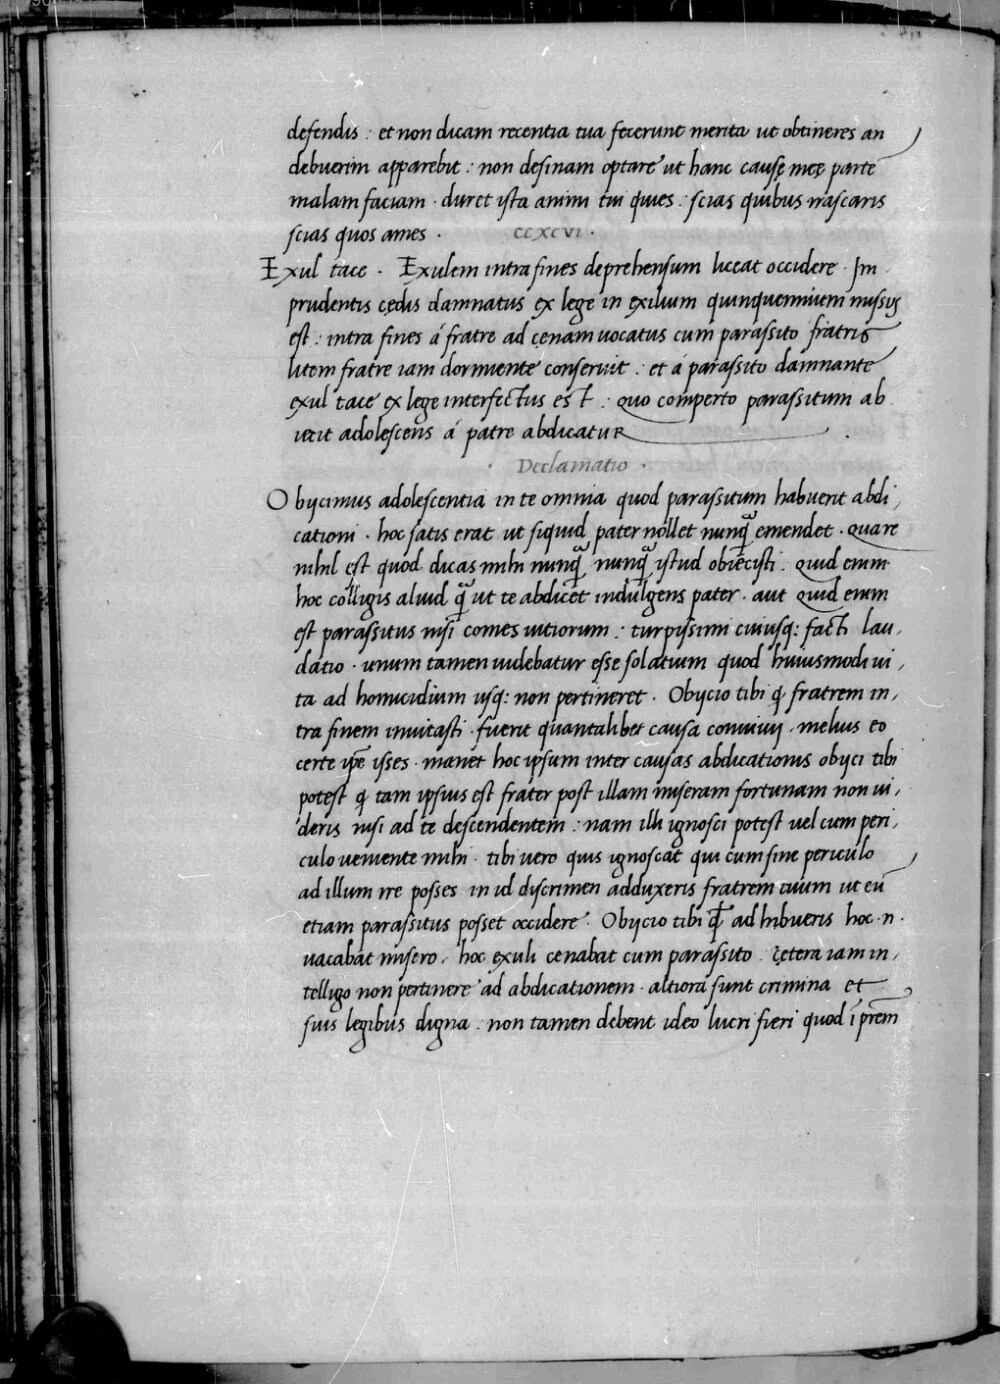 defendis : et non dicam recentia tua fecerunt merita ut obtineres an
debuerim apparebit : non desinam optare ut hanc causę meę parte
malam faciam · duret ista animi tui quies : scias quibus irascaris
scias quos ames · ccxcvi ·
Exul tace · Exulem intra fines deprehensum liceat occidere · Im
prudentis cędis damnatus ex lege in exilium quinquennium missus
est : intra fines á fratre ad cęnam vocatus cum parassito fratris
litem fratre iam dormiente conseruit : et á parassito damnante
exul tace ex lege interfectus est : quo comperto parassitum ab
iecit adolescens á patre abdicatur
· Declamatio ·
Obijcimus adolescentia in te omnia quod parassitum habuerit abdi,
cationi · hoc satis erat ut siquid pater nollet nunq̃ emendet · quare
nihil est quod dicas mihi nunq̃ nunq̃ istud obiecisti : quid enim
hoc colligis aliud q̃ ut te abdicet indulgens pater · aut quid enim
est parassitus nisi comes vitiorum : turpissimi cuiusq: facti lau,
datio · unum tamen videbatur esse solatium quod huiusmodi vi,
ta ad homicidium usq: non pertineret · Obijcio tibi q̃ fratrem in,
tra finem invitasti · fuerit quantalibet causa convivij · melius eo
certe ip̃e isses · manet hoc ipsum inter causas abdicationis obijci tibi
potest q̃ tam ipsius est frater post illam miseram fortunam non vi,
deris nisi ad te descendentem : nam illi ignosci potest vel cum peri,
culo veniente mihi · tibi vero quis ignoscat qui cum sine periculo
ad illum ire posses in id discrimen adduxeris fratrem tuum ut eũ
etiam parassitus posset occidere · Obijcio tibi q̃ adhibueris hoc · n ·
vacabat misero, hoc exuli cenabat cum parassito · cętera iam in,
telligo non pertinere ad abdicationem · altiora sunt crimina et
suis legibus digna : non tamen debent ideo lucri fieri quod ĩ p̃rem